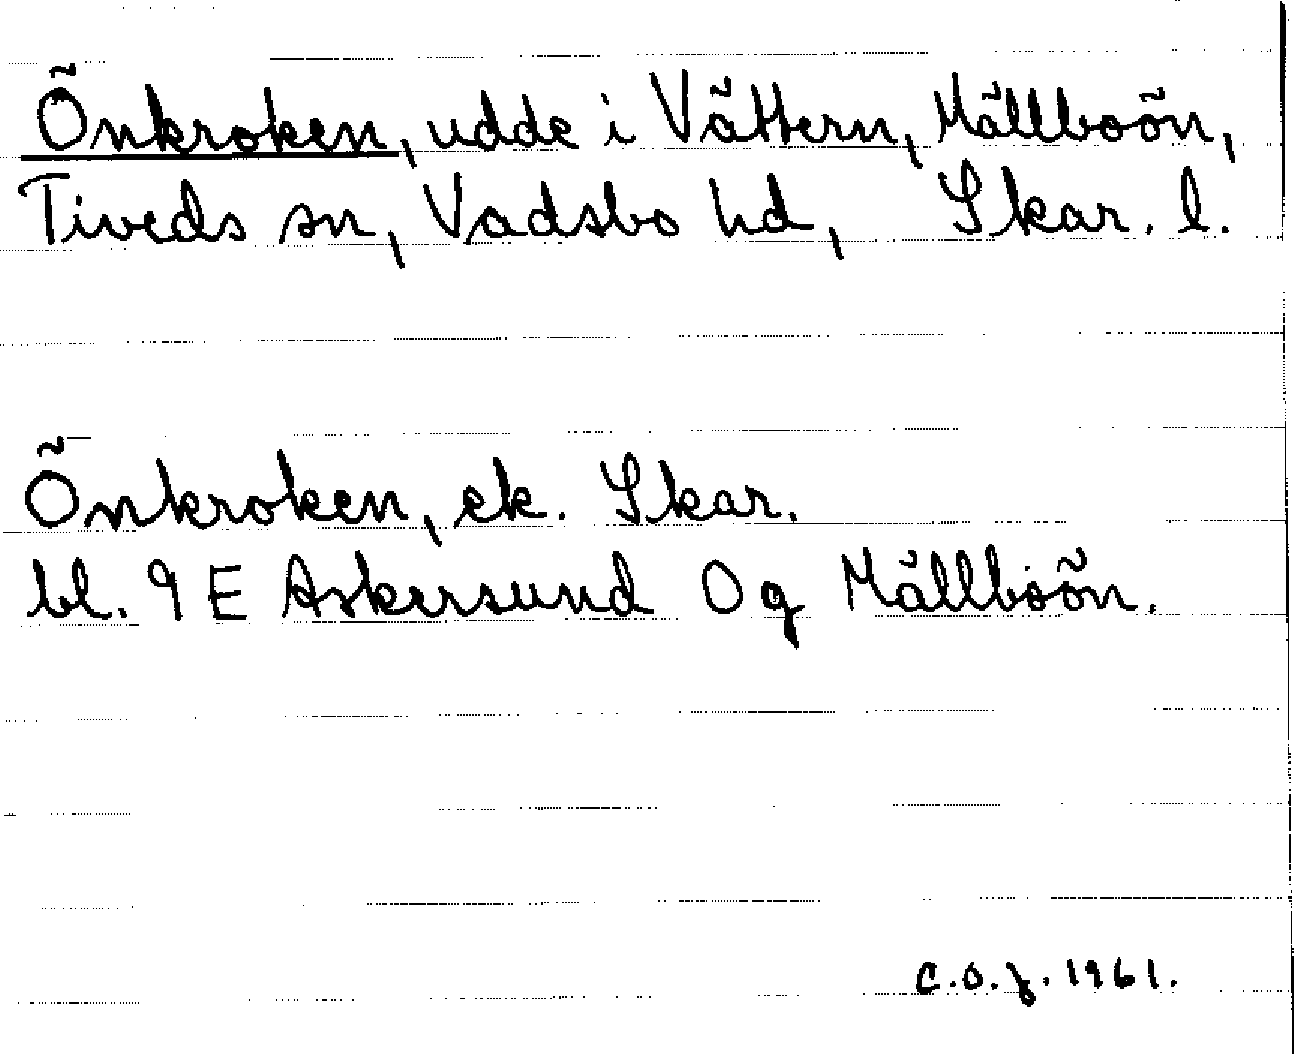 Önkroken, udde i Vättern, Mällboön,
Tiveds sn, Vadsbo hd, Skar. l.
Önkroken, ek. Skar.
bl. 9 E Askersund 0 g Mällboön.
C.O.J. 1961.